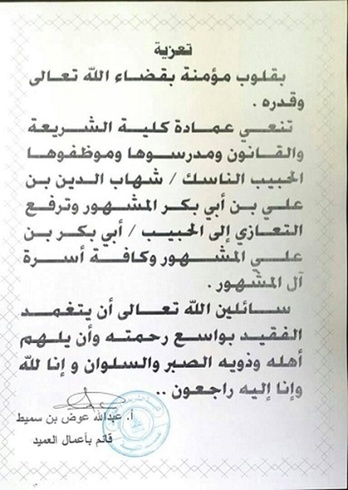 تعزية
بقلوب مؤمنة بقضاء الله تعالى
وقدره .
تنعي عمادة كلية الشريعة
والقانون ومدرسوها وموظفوها
الحبيب الناسك / شهاب الدين بن
علي بن أبي بكر المشهور وترفع
التعازي إلى الحبيب / أبي بكر بن
علي المشهور وكافة أسرة
آل المشهور .
سائلين الله تعالى أن يتغمد
الفقيد بواسع رحمته وأن يلهم
أهله وذويه الصبر والسلوان و إنا لله
وإنا إليه راجعون ..
أ. عبدالله عوض بن سميط
قائم بأعمال العميد